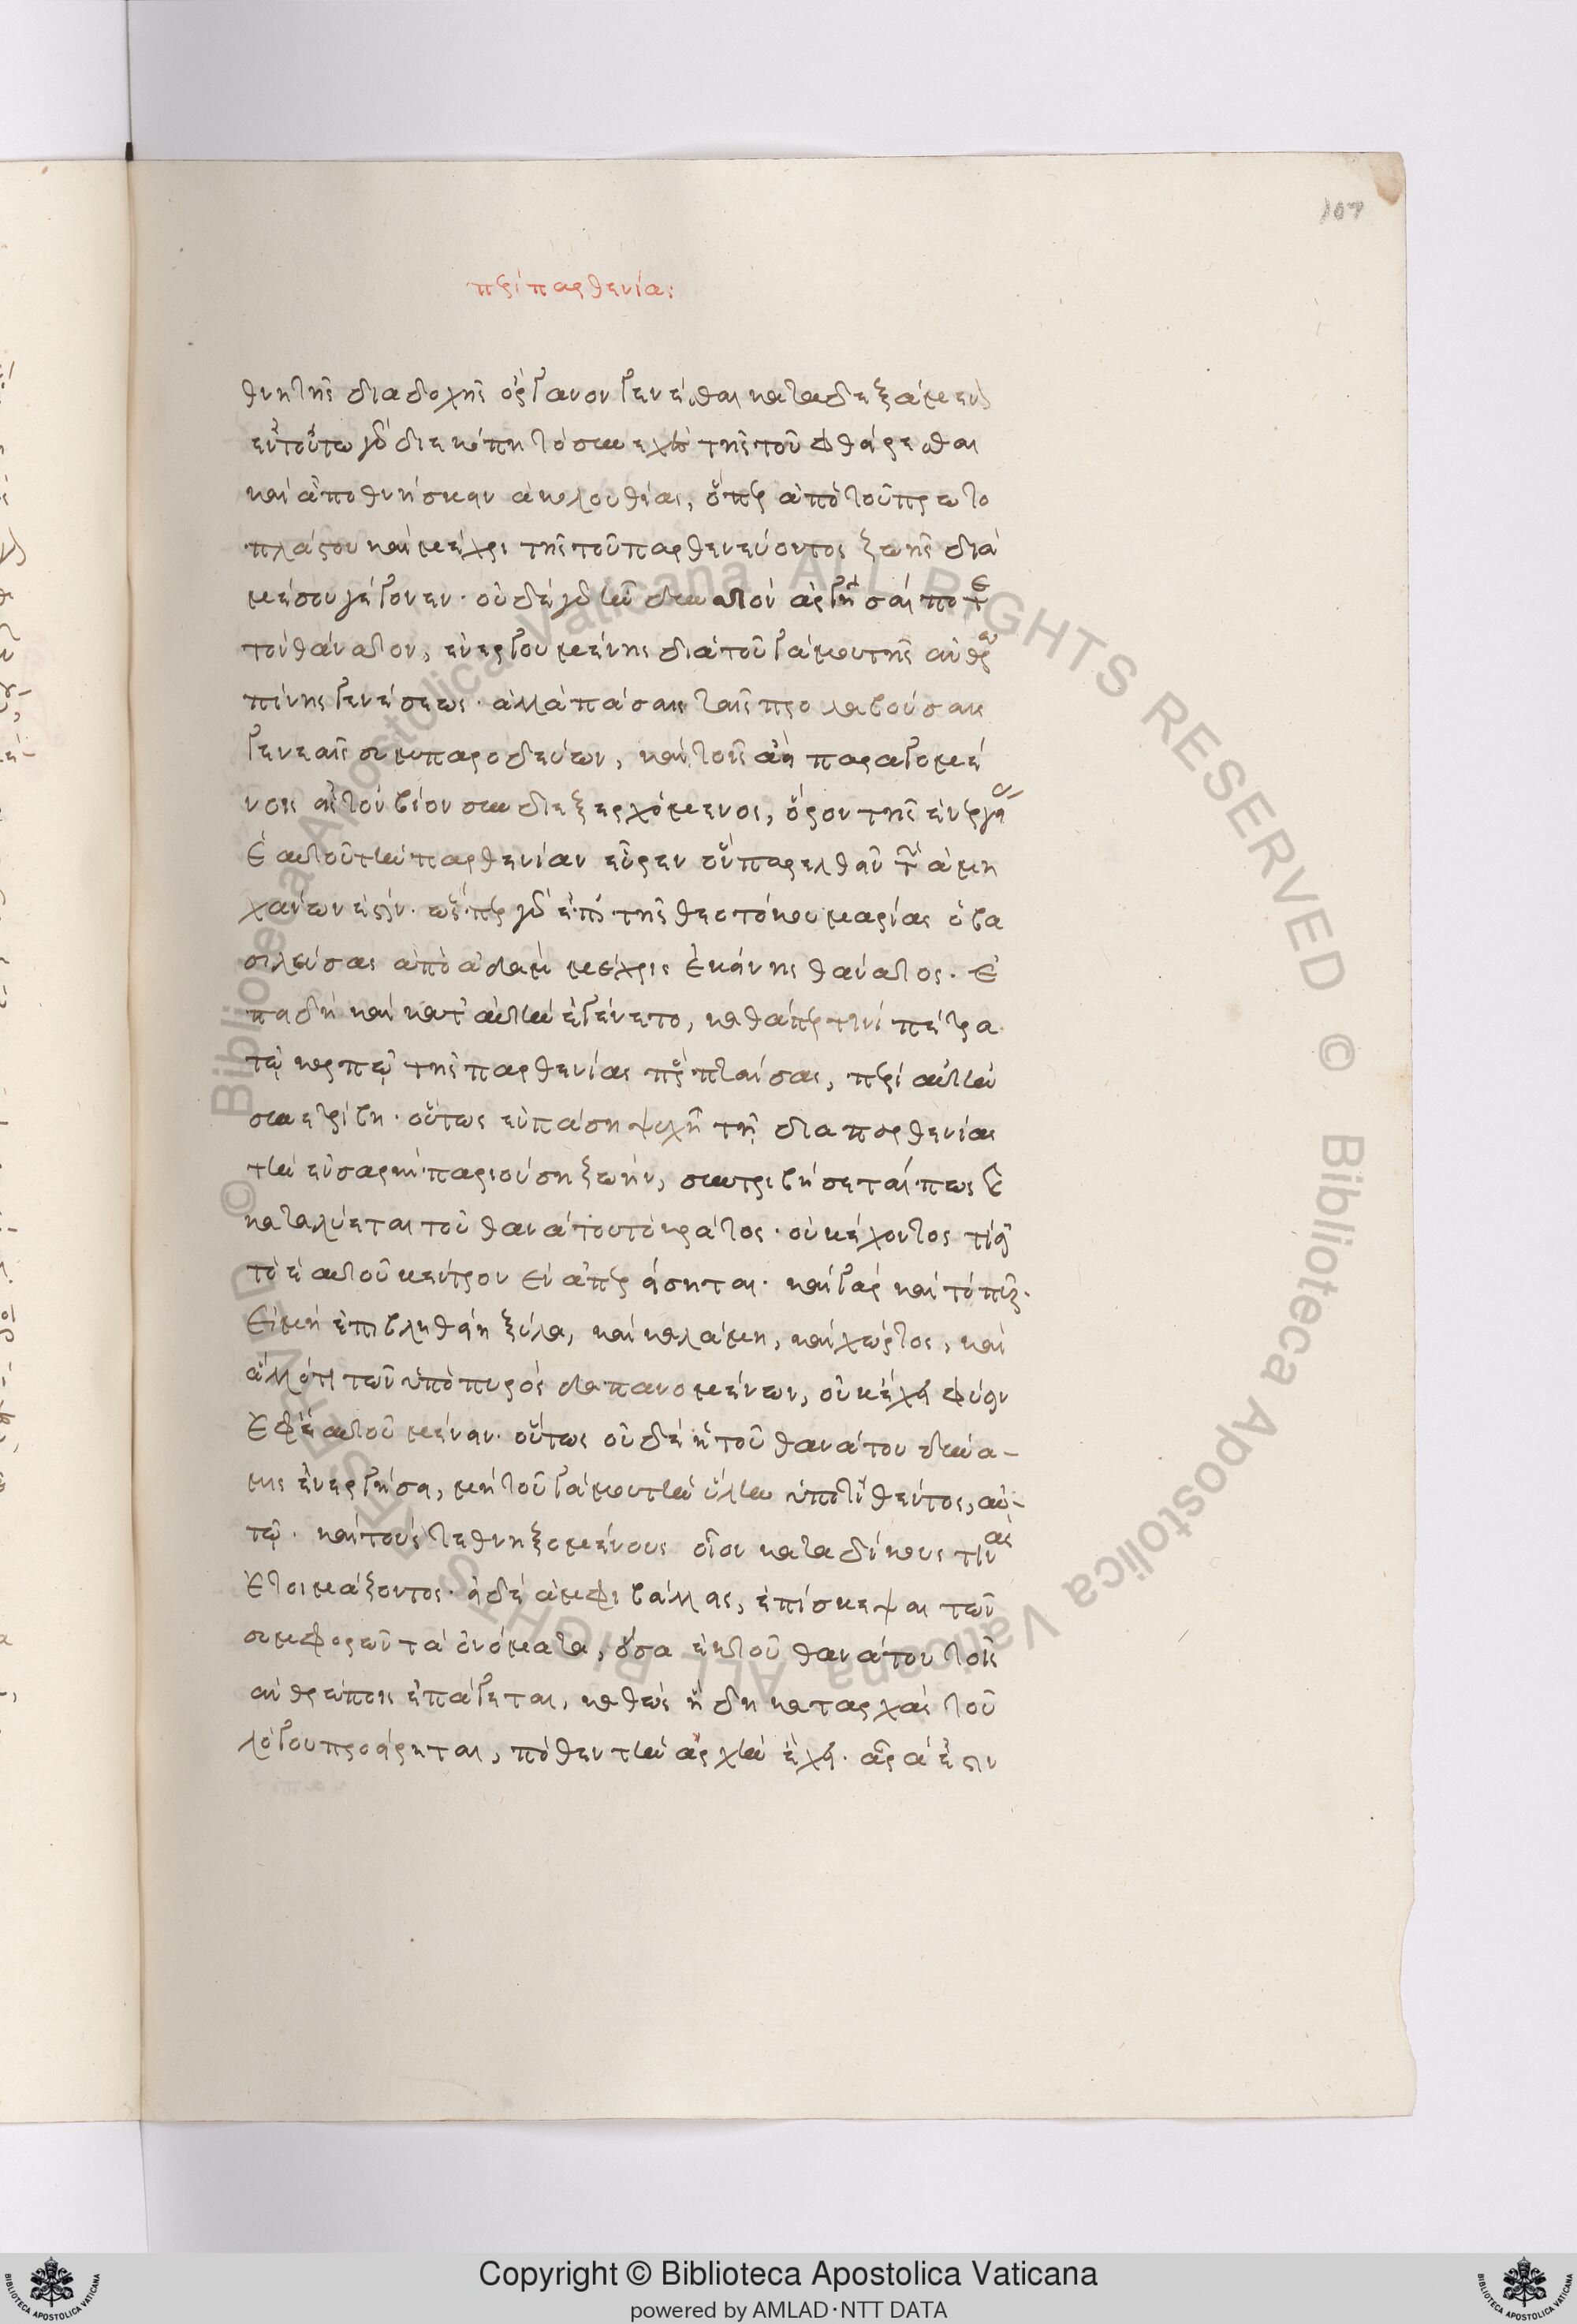 107
περὶ παρθενίας
θνητῆς διαδοχῆς ὄργανον γενέσθαι καταδεξάμενοι
ἐν τούτω γὰρ διεκόπη τὸ συνεχὲς τῆς τοῦ φθείρεσθαι
καὶ ἀποθνήσκειν ἀκολουθίας, ὅπερ ἀπὸ τοῦ πρωτο
πλάστου καὶ μέχρι τῆς τοῦ παρθενεύοντος ζωῆς διὰ
μέσου γέγονεν· οὐδὲ γὰρ ἦν δυνατὸν ἀργῆσαί ποτε
τὸν θάνατον, ἐνεργουμένης διὰ τοῦ γάμου τῆς ἀνθρω
πίνης γενέσεως· ἀλλὰ πάσαις ταῖς προλαβούσαις
γενεαῖς συμπαροδεύων, καὶ τοῖς ἀεὶ παραγομέ
νοις εἰς τὸν βίον συνδιεξερχόμενος, ὅρον τῆς ἐνεργείας
ἑαυτοῦ τὴν παρθενίαν εὗρεν ὃν παρελθεῖν τῶν ἀμη
χάνων ἐστίν· ὥσπερ γὰρ ἐπὶ τῆς θεοτόκου μαρίας ὁ βα
σιλεύσας ἀπὸ ἀδὰμ μέχρις ἐκείνης θάνατος· ἐ
πειδὴ καὶ κατ' αὐτὴν ἐγένετο, καθάπερ τινὶ πέτρα
τῷ καρπῷ τῆς παρθενίας προσπταίσας, περὶ αὐτὴν
συνετρίβη· οὕτως ἐν πάσῃ ψυχῇ τῇ διὰ παρθενίας
τὴν ἐν σαρκὶ παριούσῃ ζωήν, συντριβήσεταί πως καὶ
καταλύεται τοῦ θανάτου τὸ κράτος· οὐκ ἔχοντος τίσι
τὸ ἑαυτοῦ κέντρον ἐναπερείσηται· καὶ γὰρ καὶ τὸ πῦρ·
εἰ μὴ ἐπιβληθείη ξύλα, καὶ καλάμη, καὶ χόρτος, καὶ
ἄλλό τι τῶν ὑπὸ πυρὸς δαπανομένων, οὐκ ἔχει φύσιν
ἐφ' ἑαυτοῦ μένειν· οὕτως οὐδὲ ἡ τοῦ θανάτου δύνα-
μις ἐνεργήσει, μὴ τοῦ γάμου τὴν ὕλην ὑποτιθέντος, αὐ-
τῷ· καὶ τοὺς τεθνηξομένους οἷον καταδίκους τινὰς
ἑτοιμάζοντος· εἰ δὲ ἀμφιβάλλεις, ἐπίσκεψαι τῶν
συμφορῶν τὰ ὀνόματα, ὅσα ἐκ τοῦ θανάτου τοῖς
ἀνθρώποις ἐπάγεται, καθὼς ἤδη καταρχὰς τοῦ
λόγου προείρηται, πόθεν τὴν ἀρχὴν ἔχει· ἆρα ἔστιν